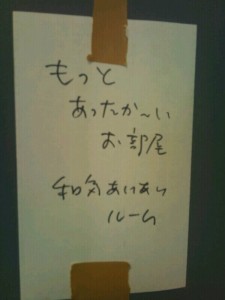 もっと
あったか〜い
お部屋
和気あいあい
ルーム